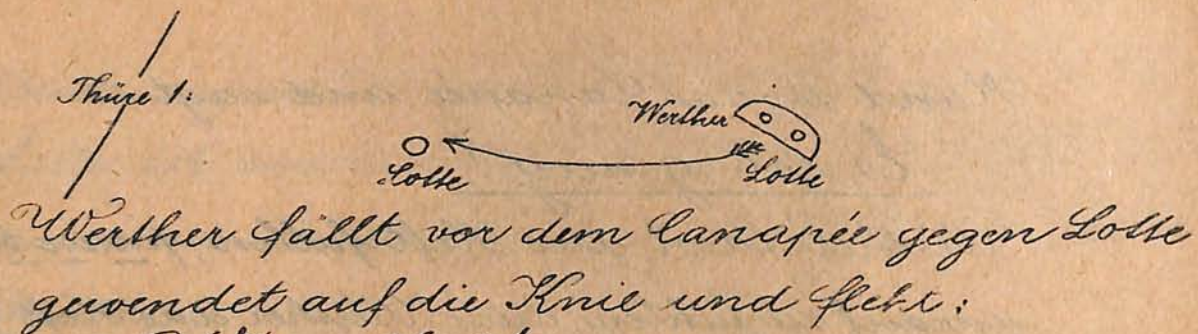 Thüre 1:
Werther
Lotte
Lotte
Werther fällt vor dem Canapée gegen Lotte
gewendet auf die Knie und fleht: